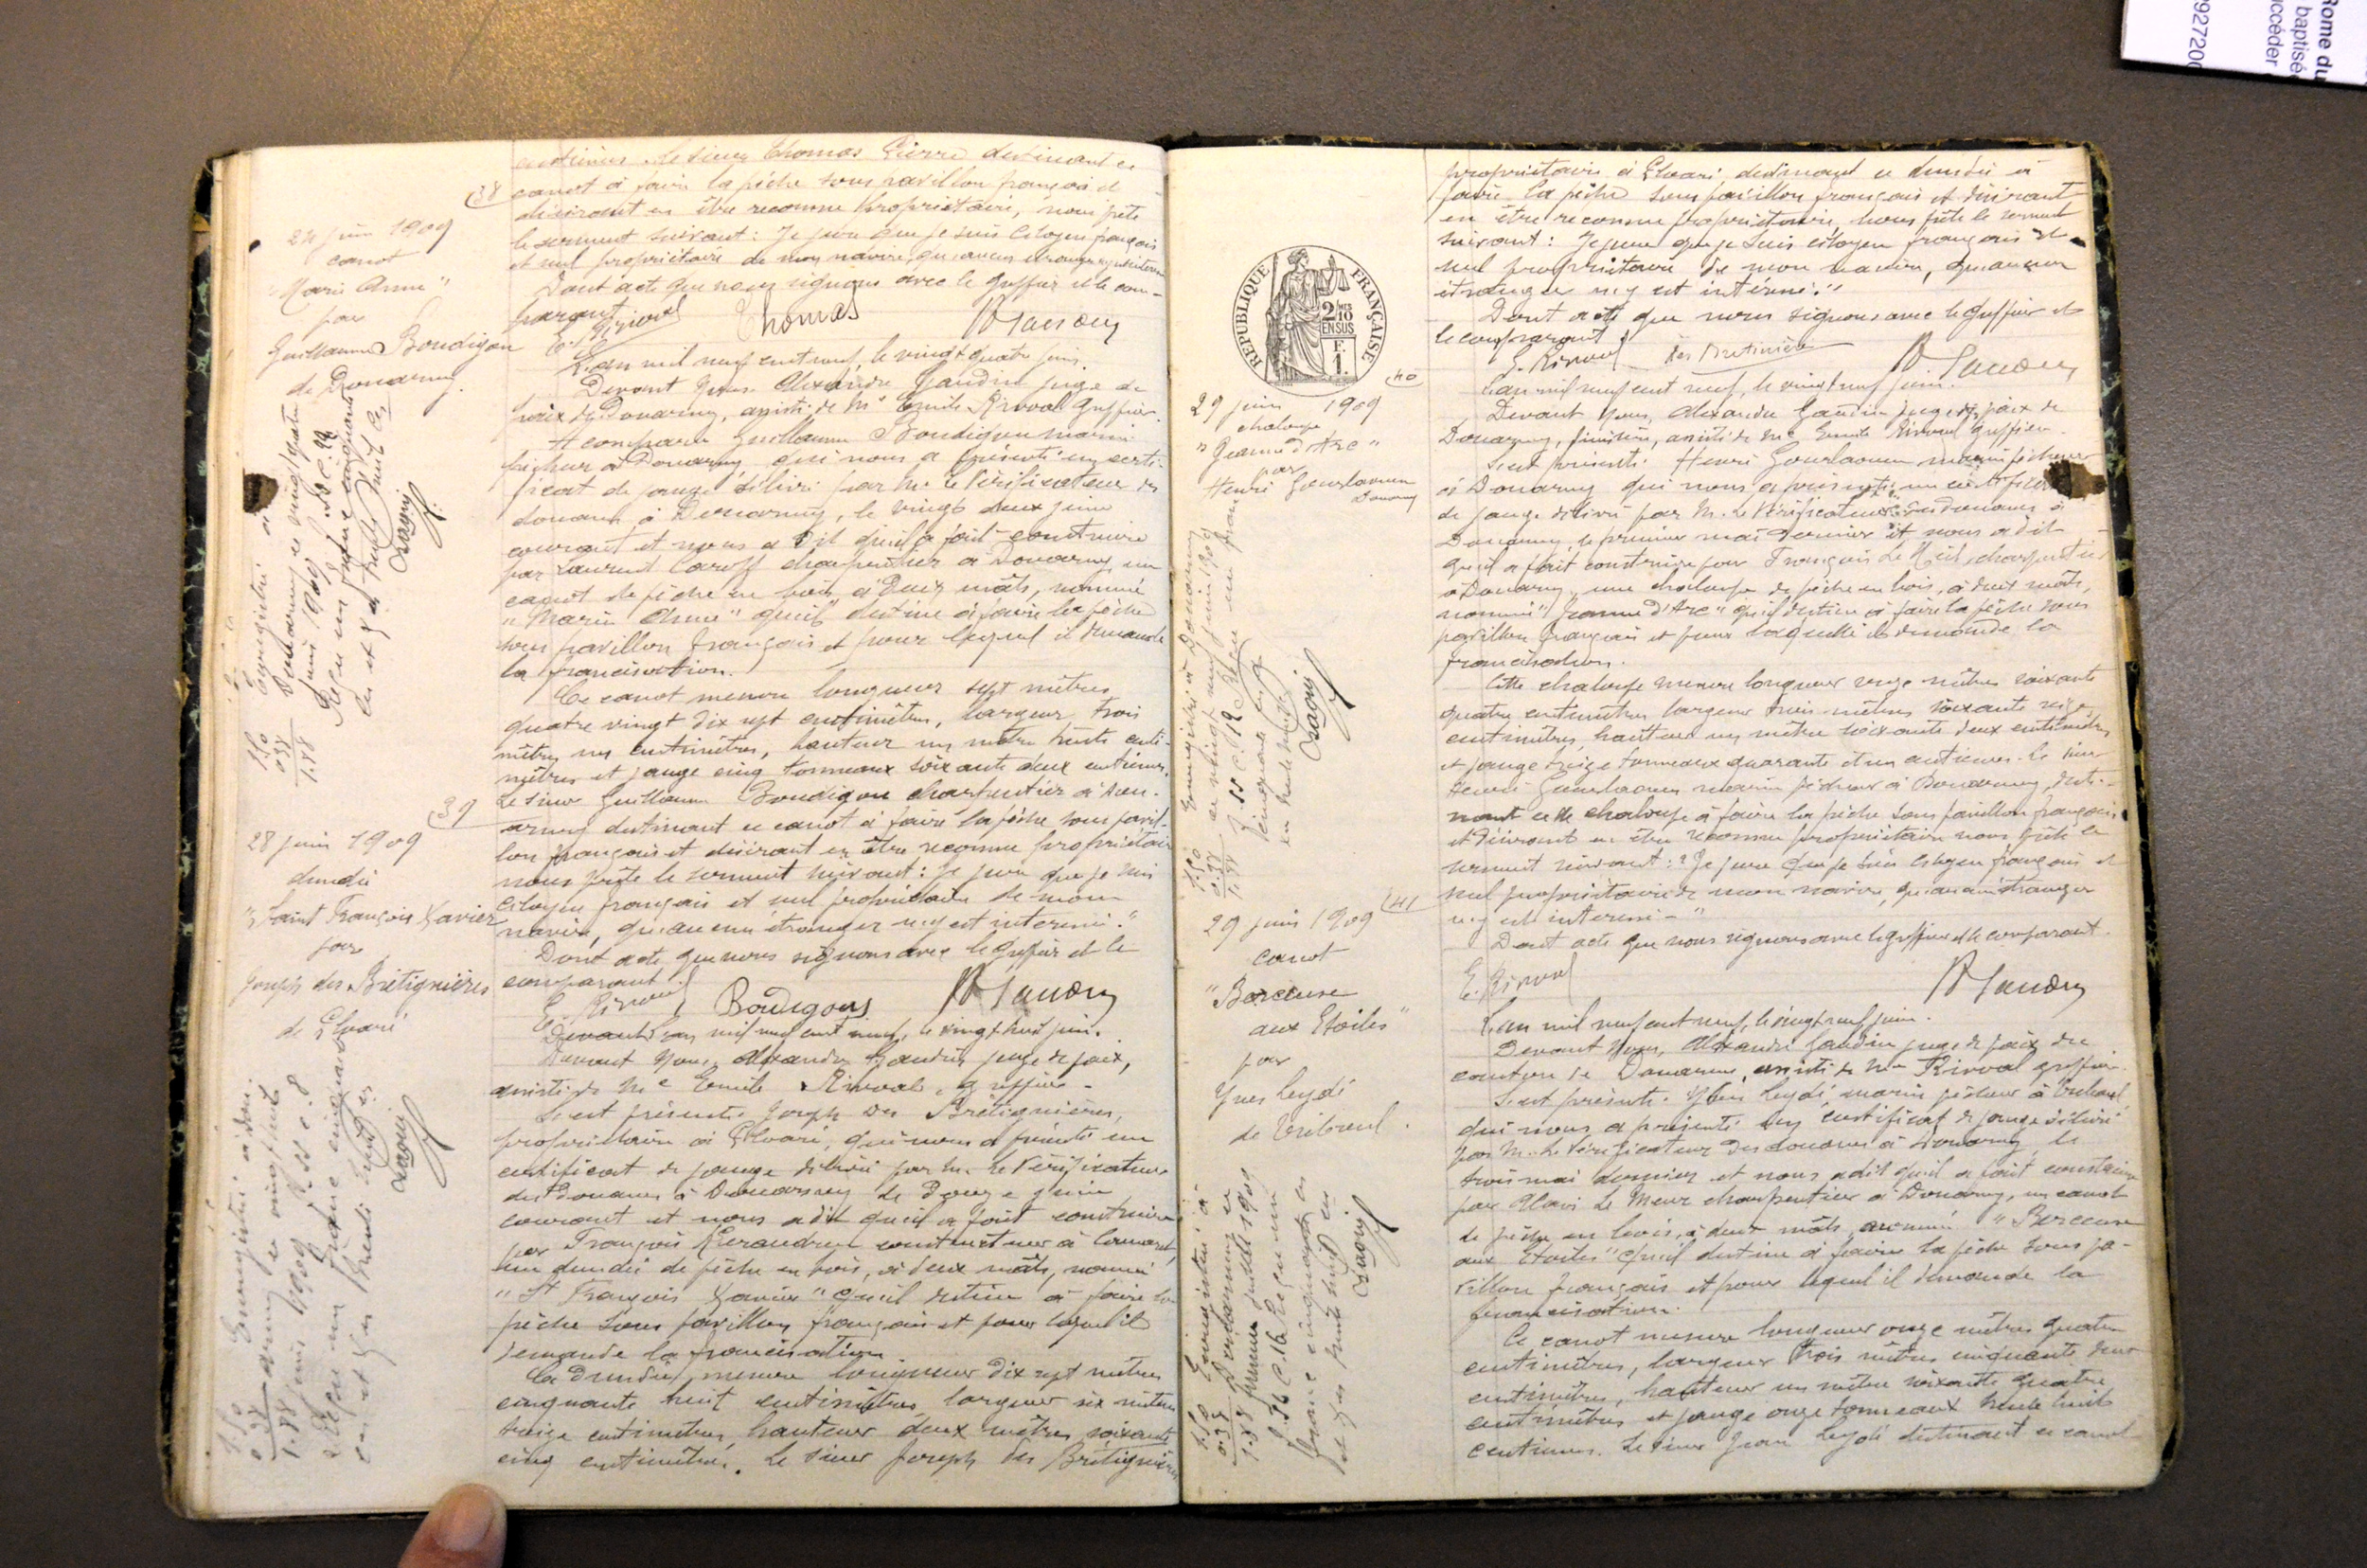 centièmes. Le sieur Thomas Pierre destinant ce
canot à faire la pêche sous pavillon français et
désirant en être reconnu propriétaire, nous prête
le serment suivant : Je jure que je suis citoyen français
et seul propriétaire de mon navire, qu'aucun étranger n'y est intéressé
Dont acte que nous signons avec le greffier et le com-
parant.
E. Rivoal Thomas A Gaudin
38
24 juin 1909
canot
"Marie Anne"
par
Guillaume Boudigou
de Douarnenez
Enregistré à
Douarnenez le vingt quatre
juin 1909
Reçu un franc cinquante
L'an mil neuf cent neuf, le vingt quatre juin.
Devant Nous Alexandre Gaudin juge de
paix de Douarnenez, assisté de Me Emile Rivoal Greffier
A comparu Guillaume Boudigou marin
pêcheur à Douarnenez, qui nous a présenté un certi-
ficat de jauge délivré par Mr le Vérificateur des
douanes à Douarnenez, le vingt deux juin
courant et nous a dit qu'il a fait construire
par Laurent Caroff charpentier à Douarnenez, un
canot de pêche en bois, à deux mâts, nommé
"Marie Anne" qu'il destine à faire la pêche
sous pavillon français et pour lequel il demande
la francisation.
Ce canot mesure longueur sept mètres
quatre vingt dix sept centimètres, largeur trois
mètres un centimètres, hauteur un mètre trente centi-
mètres et jauge cinq tonneaux soixante deux centièmes.
Le sieur Guillaume Boudigou charpentier à Dou-
arnenez destinant ce canot à faire la pêche sous pavil-
lon français et désirant en être reconnu propriétaire
nous prête le serment suivant : Je jure que je suis
citoyen français et seul propriétaire de mon
navire, qu'aucun étranger n'y est intéressé."
Dont acte que nous signons avec le greffier et le
comparant.
E. Rivoal Boudigou A Gaudin
39
28 juin 1909
dundée
"Saint François Xavier
par
Joseph des Brétignières
de Ploaré
Enregistré à Dou-
arnenez le vingt huit
juin 1909 f. 55 c. 8
Reçu un franc cinquante
1.50
0.38
1.88
Devant L'an mil neuf cent neuf, le vingt huit juin.
Devant Nous Alexandre Gaudin juge de paix,
assisté de Me Emile Rivoal, greffier.
S'est présenté Joseph des Brétignières,
propriétaire à Ploaré, qui nous a présenté un
certificat de jauge délivré par Mr le Vérificateur
des Douanes à Douarnenez le douze juin
courant et nous a dit qu'il a fait construire
par François Kerandren constructeur à
un dundée de pêche en bois, à deux mâts, nommé
"St François Xavier" qu'il destine à faire la
pêche sous pavillon français et pour lequel il
demande la francisation
Ce Dundée mesure longueur dix sept mètres
cinquante huit centimètres, largeur six mètres
treize centimètres, hauteur deux mètres soixante
cinq centimètres. Le sieur Joseph des Brétignières
propriétaire à Ploaré destinant ce dundée à
faire la pêche sous pavillon français et désirant
en être reconnu propriétaire, nous prête le serment
suivant : Je jure que je suis citoyen français et
seul propriétaire de mon navire, qu'aucun
étranger n'y est intéressé."
Dont acte que nous signons avec le greffier et
le comparant.
E. Rivoal A Gaudin
REPUBLIQUE FRANÇAISE
2/10 EN SUS
F. 1.
40
29 juin 1909
chaloupe
"Jeanne d'Arc"
par
Henri Gourlaouen
Enregistré à Douarnenez
le vingt neuf juin 1909
f. 55 c. 12 Reçu un franc
L'an mil neuf cent neuf, le vingt neuf juin.
Devant Nous, Alexandre Gaudin juge de paix de
Douarnenez, finistère, assisté de Me Emile Rivoal greffier
S'est présenté Henri Gourlaouen marin pêcheur
à Douarnenez qui nous a présenté un certificat
de jauge délivré par M. le Vérificateur des douanes à
Douarnenez, le premier mai dernier et nous a dit
qu'il a fait construire par François Le charpentier
à Douarnenez une chaloupe de pêche en bois, à deux mâts,
nommée "Jeanne d'Arc" qu'il destine à faire la pêche sous
pavillon français et pour laquelle il demande la
francisation.
Cette chaloupe mesure longueur onze mètres soixante
quatre centimètres, largeur trois mètres soixante seize
centimètres, hauteur un mètre soixante deux centimètres
et jauge treize tonneaux quarante et un centièmes. Le sieur
Henri Gourlaouen marin pêcheur à Douarnenez, desti-
nant cette chaloupe à faire la pêche sous pavillon français
et désirant en être reconnu propriétaire nous prête le
serment suivant : "Je jure que je suis citoyen français et
seul propriétaire de mon navire, qu'aucun étranger
n'y est intéressé."
Dont acte que nous signons avec le greffier et le comparant.
E. Rivoal A Gaudin
41
29 juin 1909
canot
"Berceuse
aux Etoiles"
par
Yves Leydé
de Tréboul.
Enregistré à
Douarnenez le
premier juillet 1909
f. 56 c. 16 Reçu un
franc cinquante
L'an mil neuf cent neuf, le vingt neuf juin.
Devant Nous, Alexandre Gaudin juge de paix du
canton de Douarnenez, assisté de Me Rivoal greffier.
S'est présenté Yves Leydé, marin pêcheur à Tréboul
qui nous a présenté un certificat de jauge délivré
par M. le Vérificateur des douanes à Douarnenez, le
trois mai dernier et nous a dit qu'il a fait construire
par Alain Le Meur charpentier à Douarnenez, un canot
de pêche en bois, à deux mâts, nommé "Berceuse
aux Etoiles" qu'il destine à faire la pêche sous pa-
villon français et pour lequel il demande la
francisation.
Ce canot mesure longueur onze mètres quatre
centimètres, largeur trois mètres cinquante deux
centimètres, hauteur un mètre soixante quatre
centimètres et jauge onze tonneaux trente huit
centièmes. Le sieur Jean Leydé destinant ce canot
Rome du
baptisé
accéder